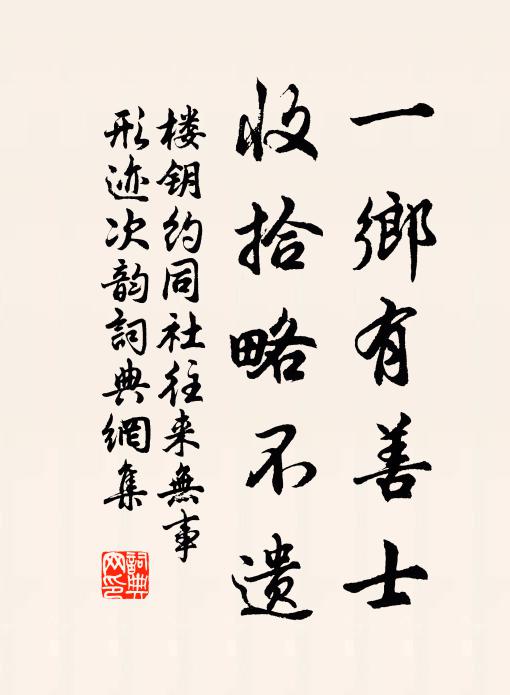 一鄉有善士
收拾略不遗
楼钥约同社往来無事
形迹次韵詞典網集
詞典
网印